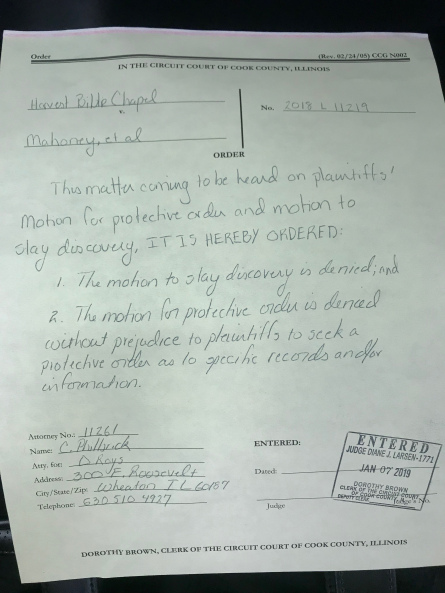 Order (Rev. 02/24/05) CCG N002
IN THE CIRCUIT COURT OF COOK COUNTY, ILLINOIS
Harvest Bible Chapel
v.
No. 2018 L 11219
Mahoney, et al
ORDER
This matter coming to be heard on plaintiffs'
motion for protective order and motion to
stay discovery, IT IS HEREBY ORDERED:
1. The motion to stay discovery is denied; and
2. The motion for protective order is denied
without prejudice to plaintiffs to seek a
protective order as to specific records and/or
information.
Attorney No.: 11261
Name: C. Philbrick
Atty. for: D Keys
Address: 300 E. Roosevelt
City/State/Zip: Wheaton IL 60187
Telephone: 630 510 4927
ENTERED:
Dated:
Judge
Judge's No.
ENTERED
JUDGE DIANE J. LARSEN-1771
JAN 07 2019
DOROTHY BROWN
CLERK OF THE CIRCUIT COURT
OF COOK COUNTY
DEPUTY CLERK
DOROTHY BROWN, CLERK OF THE CIRCUIT COURT OF COOK COUNTY, ILLINOIS